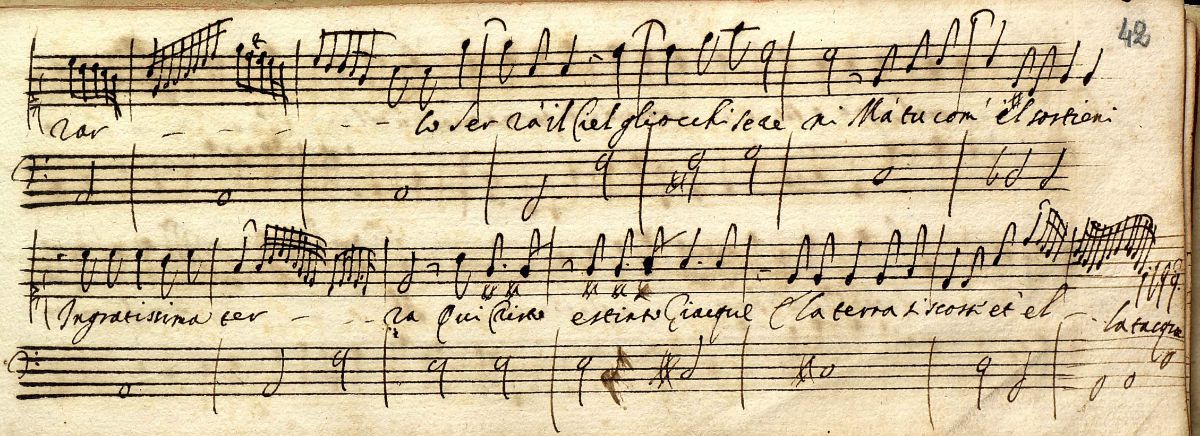 42
rar - - - - - - lo Serrà il Ciel gli occhi sere ni Má tu com' él sostieni
Ingratissima ter - - - ra Qui Cristo estinto Giacque E la terra si scosse et el - la tacque